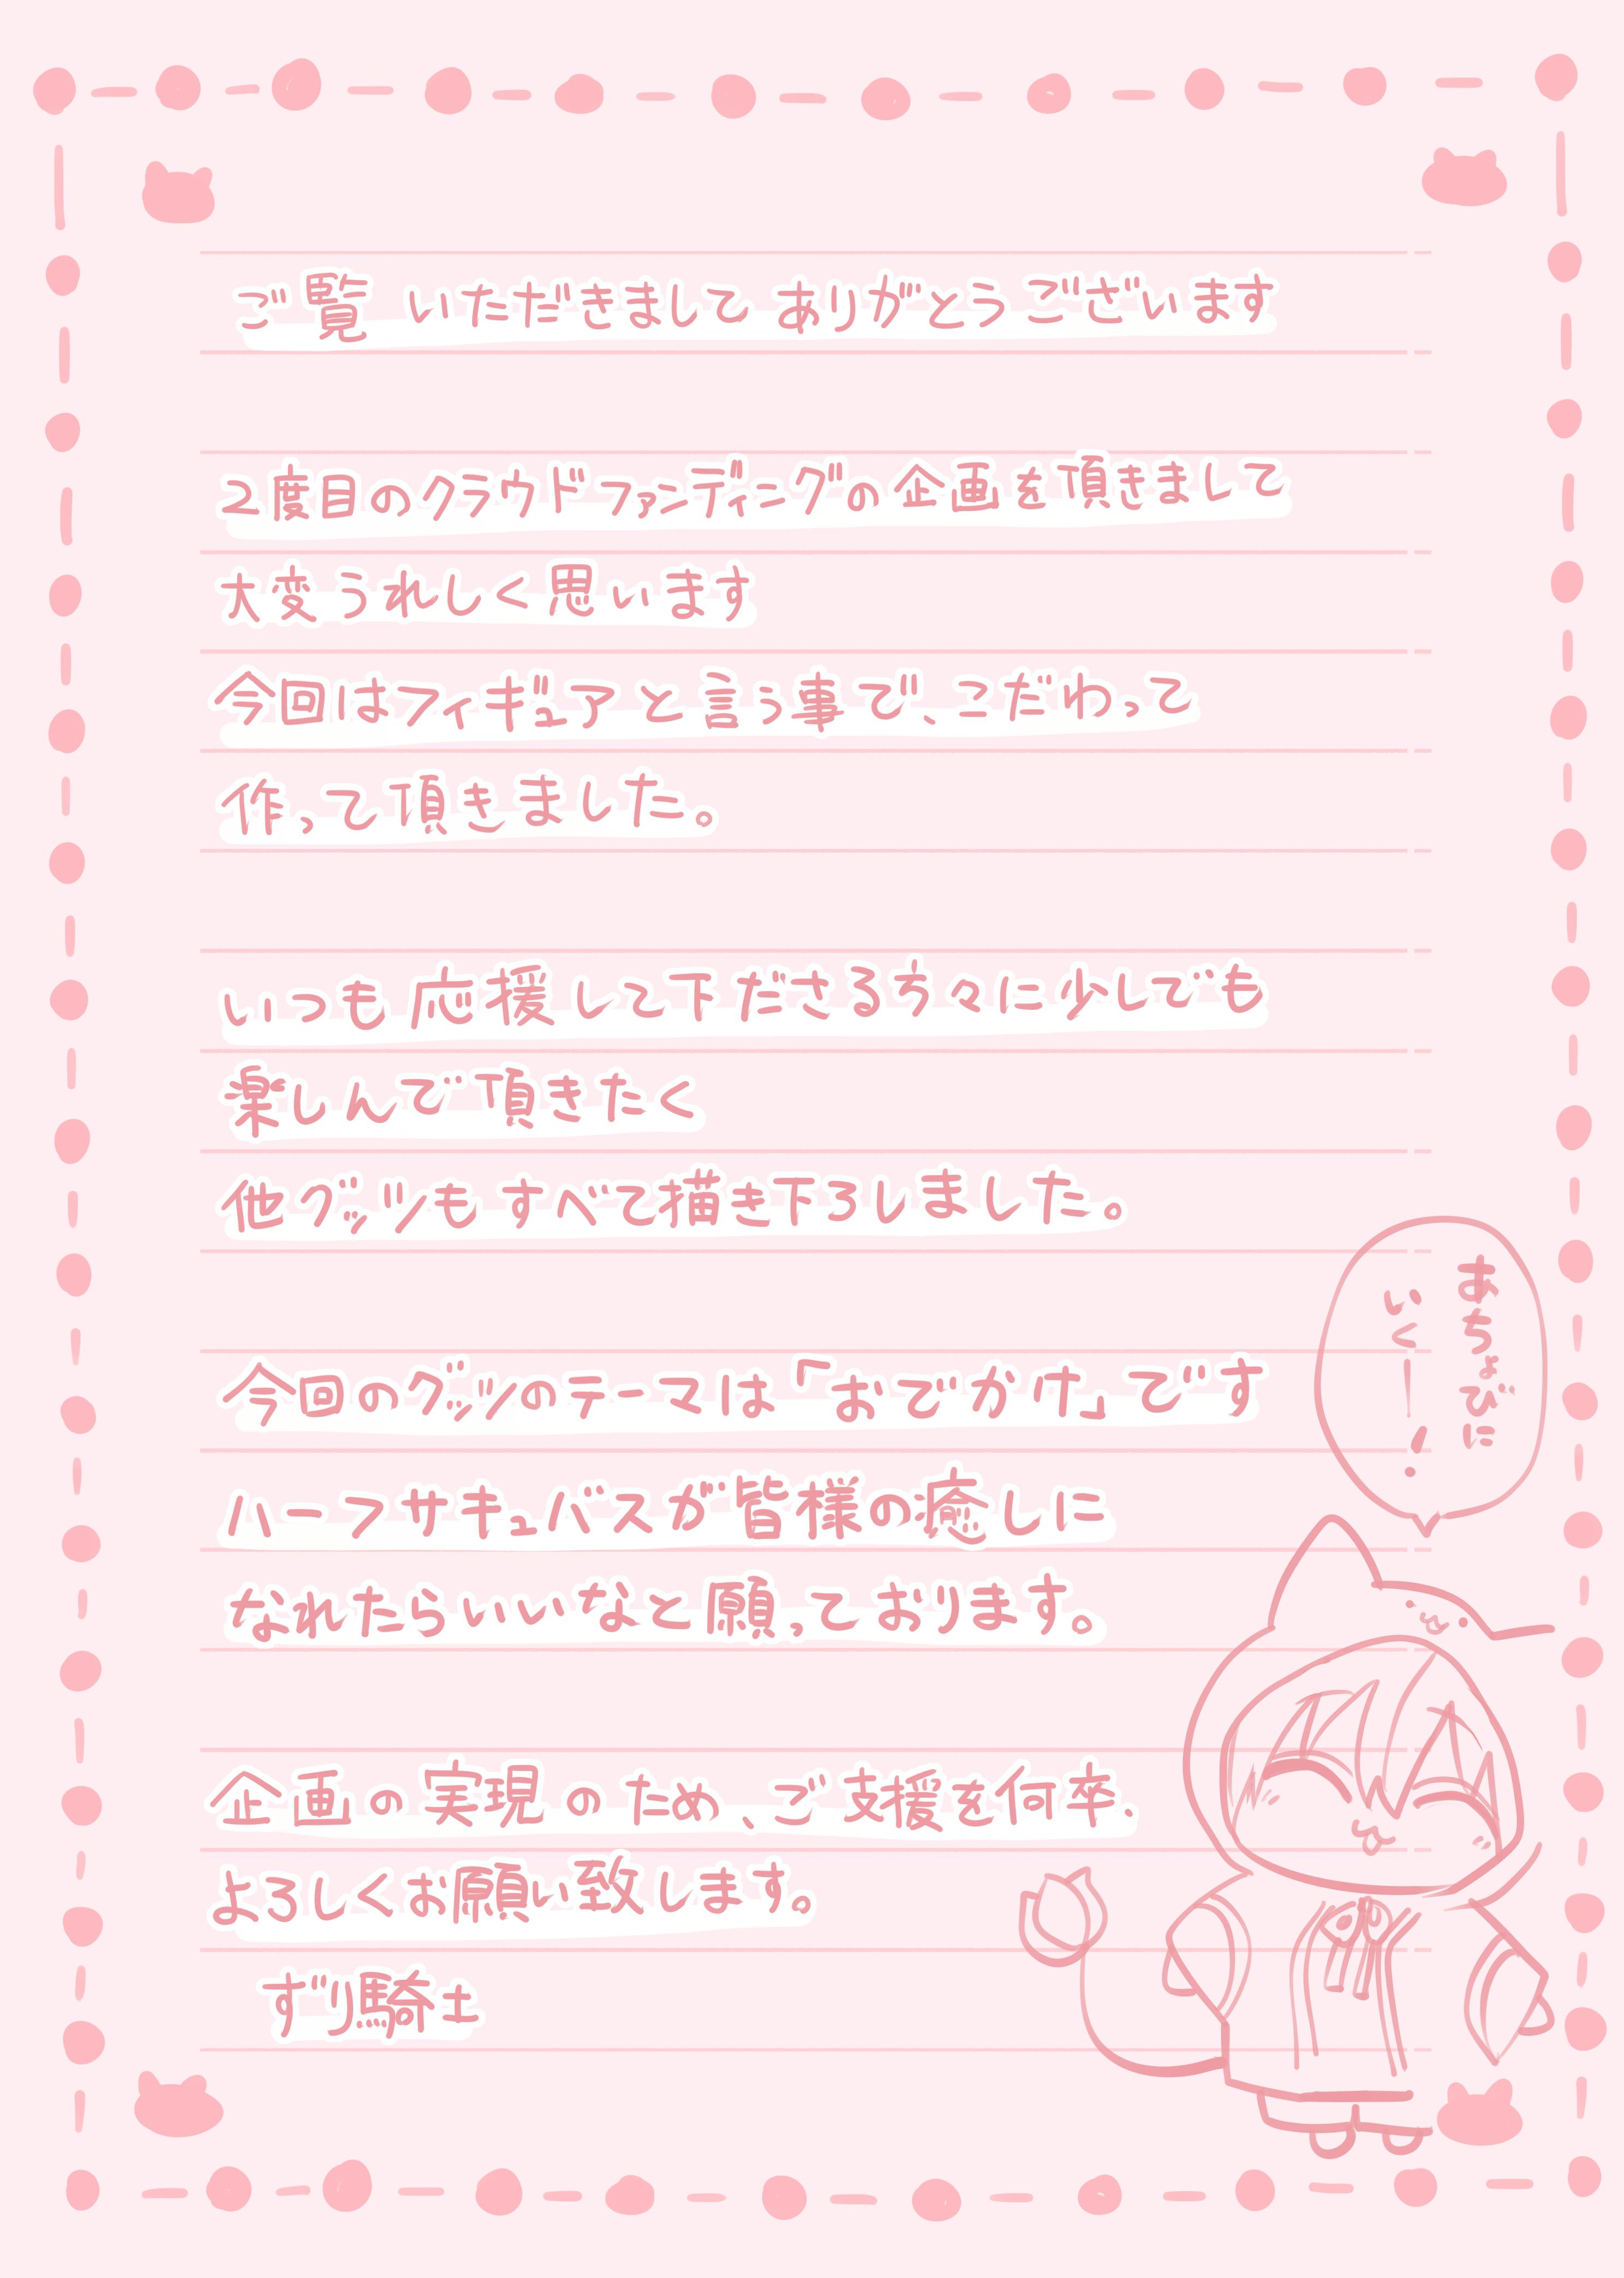 ご覧 いただきまして ありがとうございます
2度目のクラウドファンディングの企画を頂きまして
大変うれしく思います
今回はフィギュアと言う事で、こだわって
作って頂きました。
いつも応援して下ださる方々に少しでも
楽しんで頂きたく
他グッツも すべて描き下ろしました。
今回のグッツのテーマは「おでかけ」です
ハーフサキュバスが皆様の癒しに
なれたらいいなと願っております。
企画の実現のため、ご支援を何卒、
よろしくお願い致します。
ずり騎士
あちょびに
いくー!